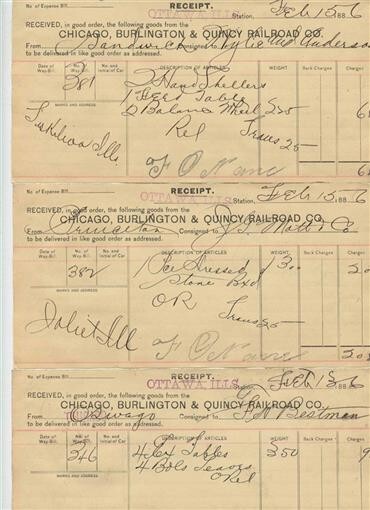 RECEIPT.
No. of Expense Bill
OTTAWA, ILLS. Station, Feb 15 1886
RECEIVED, in good order, the following goods from the
CHICAGO, BURLINGTON & QUINCY RAILROAD CO.
From Sandwich Consigned to Anderson
to be delivered in like good order as addressed.
Date of Way-Bill. No. of Way-Bill. No. and Initial of Car DESCRIPTION OF ARTICLES WEIGHT Back Charges Char
381 2 Hand Shellers
1 Feed Table
2 Balance Wheel 225
MARKS AND ADDRESS
Rel Trans 25
Ills
RECEIPT.
No. of Expense Bill
OTTAWA, ILLS. Station, Feb 15 6
RECEIVED, in good order, the following goods from the
CHICAGO, BURLINGTON & QUINCY RAILROAD CO.
From Princeton Consigned to J. L. Mott & Co
to be delivered in like good order as addressed.
Date of Way-Bill. No. of Way-Bill. No. and Initial of Car DESCRIPTION OF ARTICLES WEIGHT Back Charges
382 1 Dressed 300 20
Stone Bxd
MARKS AND ADDRESS
OR Trans 25
Joliet Ill
RECEIPT.
No. of Expense Bill
OTTAWA, ILLS. Station, 188 6
RECEIVED, in good order, the following goods from the
CHICAGO, BURLINGTON & QUINCY RAILROAD CO.
From Chicago Consigned to Bestman
to be delivered in like good order as addressed.
Date of Way-Bill. No. of Way-Bill. No. and Initial of Car DESCRIPTION OF ARTICLES WEIGHT Back Charges Char
246 4 Ex Tables 350 9
4
MARKS AND ADDRESS
O Rel